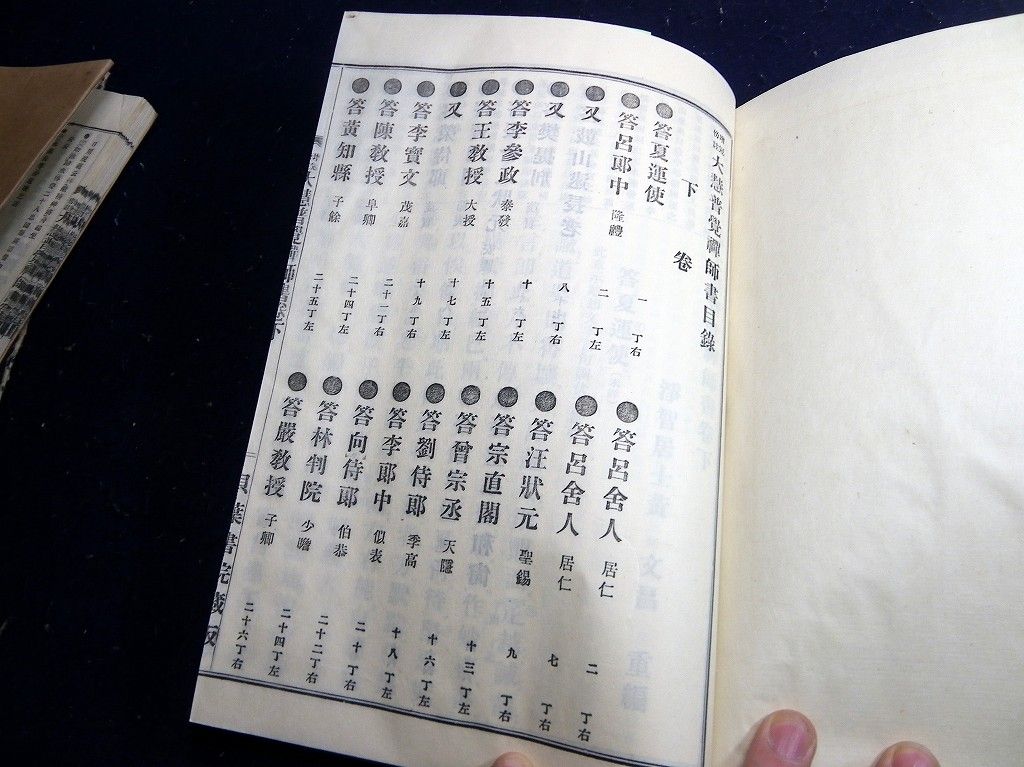 大慧普覺禪師書目錄
下卷
答夏運使 一丁右
答呂舍人 居仁 二丁右
答呂郎中 隆禮 二丁左
答呂舍人 居仁 七丁右
又
答汪狀元 聖錫 九丁右
又 八丁右
答宗直閣
答李參政 泰發 十丁左
答曾宗丞 天隱 十三丁左
答王教授 大授 十五丁左
答劉侍郎 季高 十六丁左
又 十七丁左
答李郎中 似表 十八丁左
答李寶文 茂嘉 十九丁右
答向侍郎 伯恭 二十丁右
答陳教授 阜卿 二十一丁右
答林判院 少瞻 二十二丁右
答黃知縣 子餘 二十四丁左
答嚴教授 子卿 二十四丁左
二十五丁左
二十六丁右
貝葉書院藏